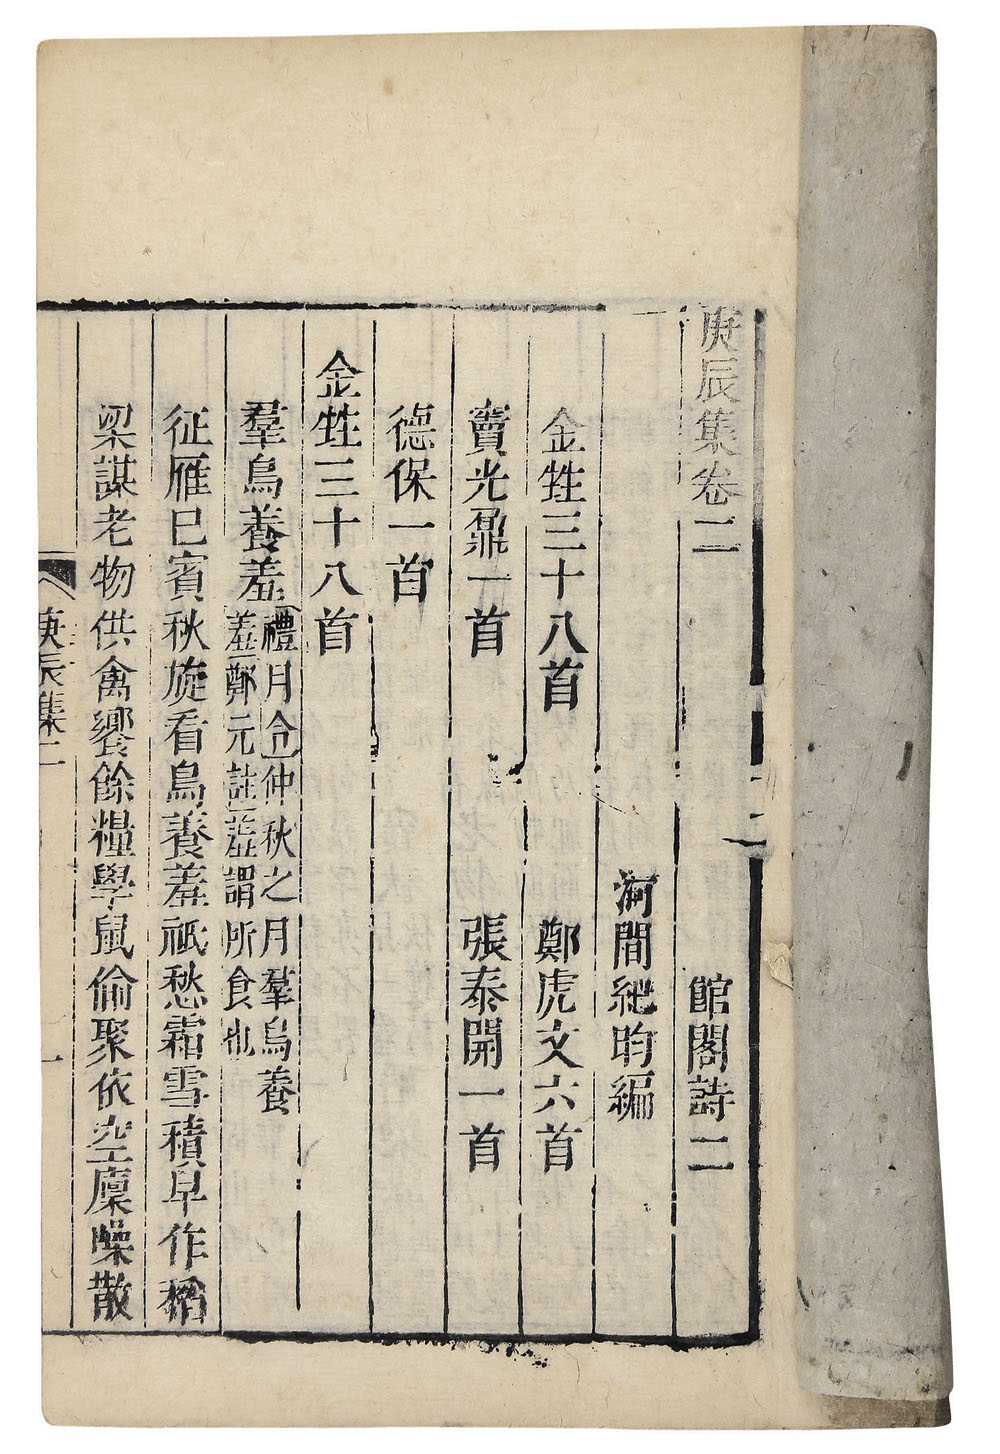 庚辰集卷二 館閣詩二
河間紀昀編
金甡三十八首 鄭虎文六首
竇光鼐一首 張泰開一首
德保一首
金甡三十八首
羣鳥養羞
禮月令仲秋之月羣鳥養
羞鄭元註羞謂所食也
征雁已賓秋旋看鳥養羞祗愁霜雪積早作稻
梁謀老物供禽饗餘糧學鼠偷聚依空廩噪散
庚辰集二 一